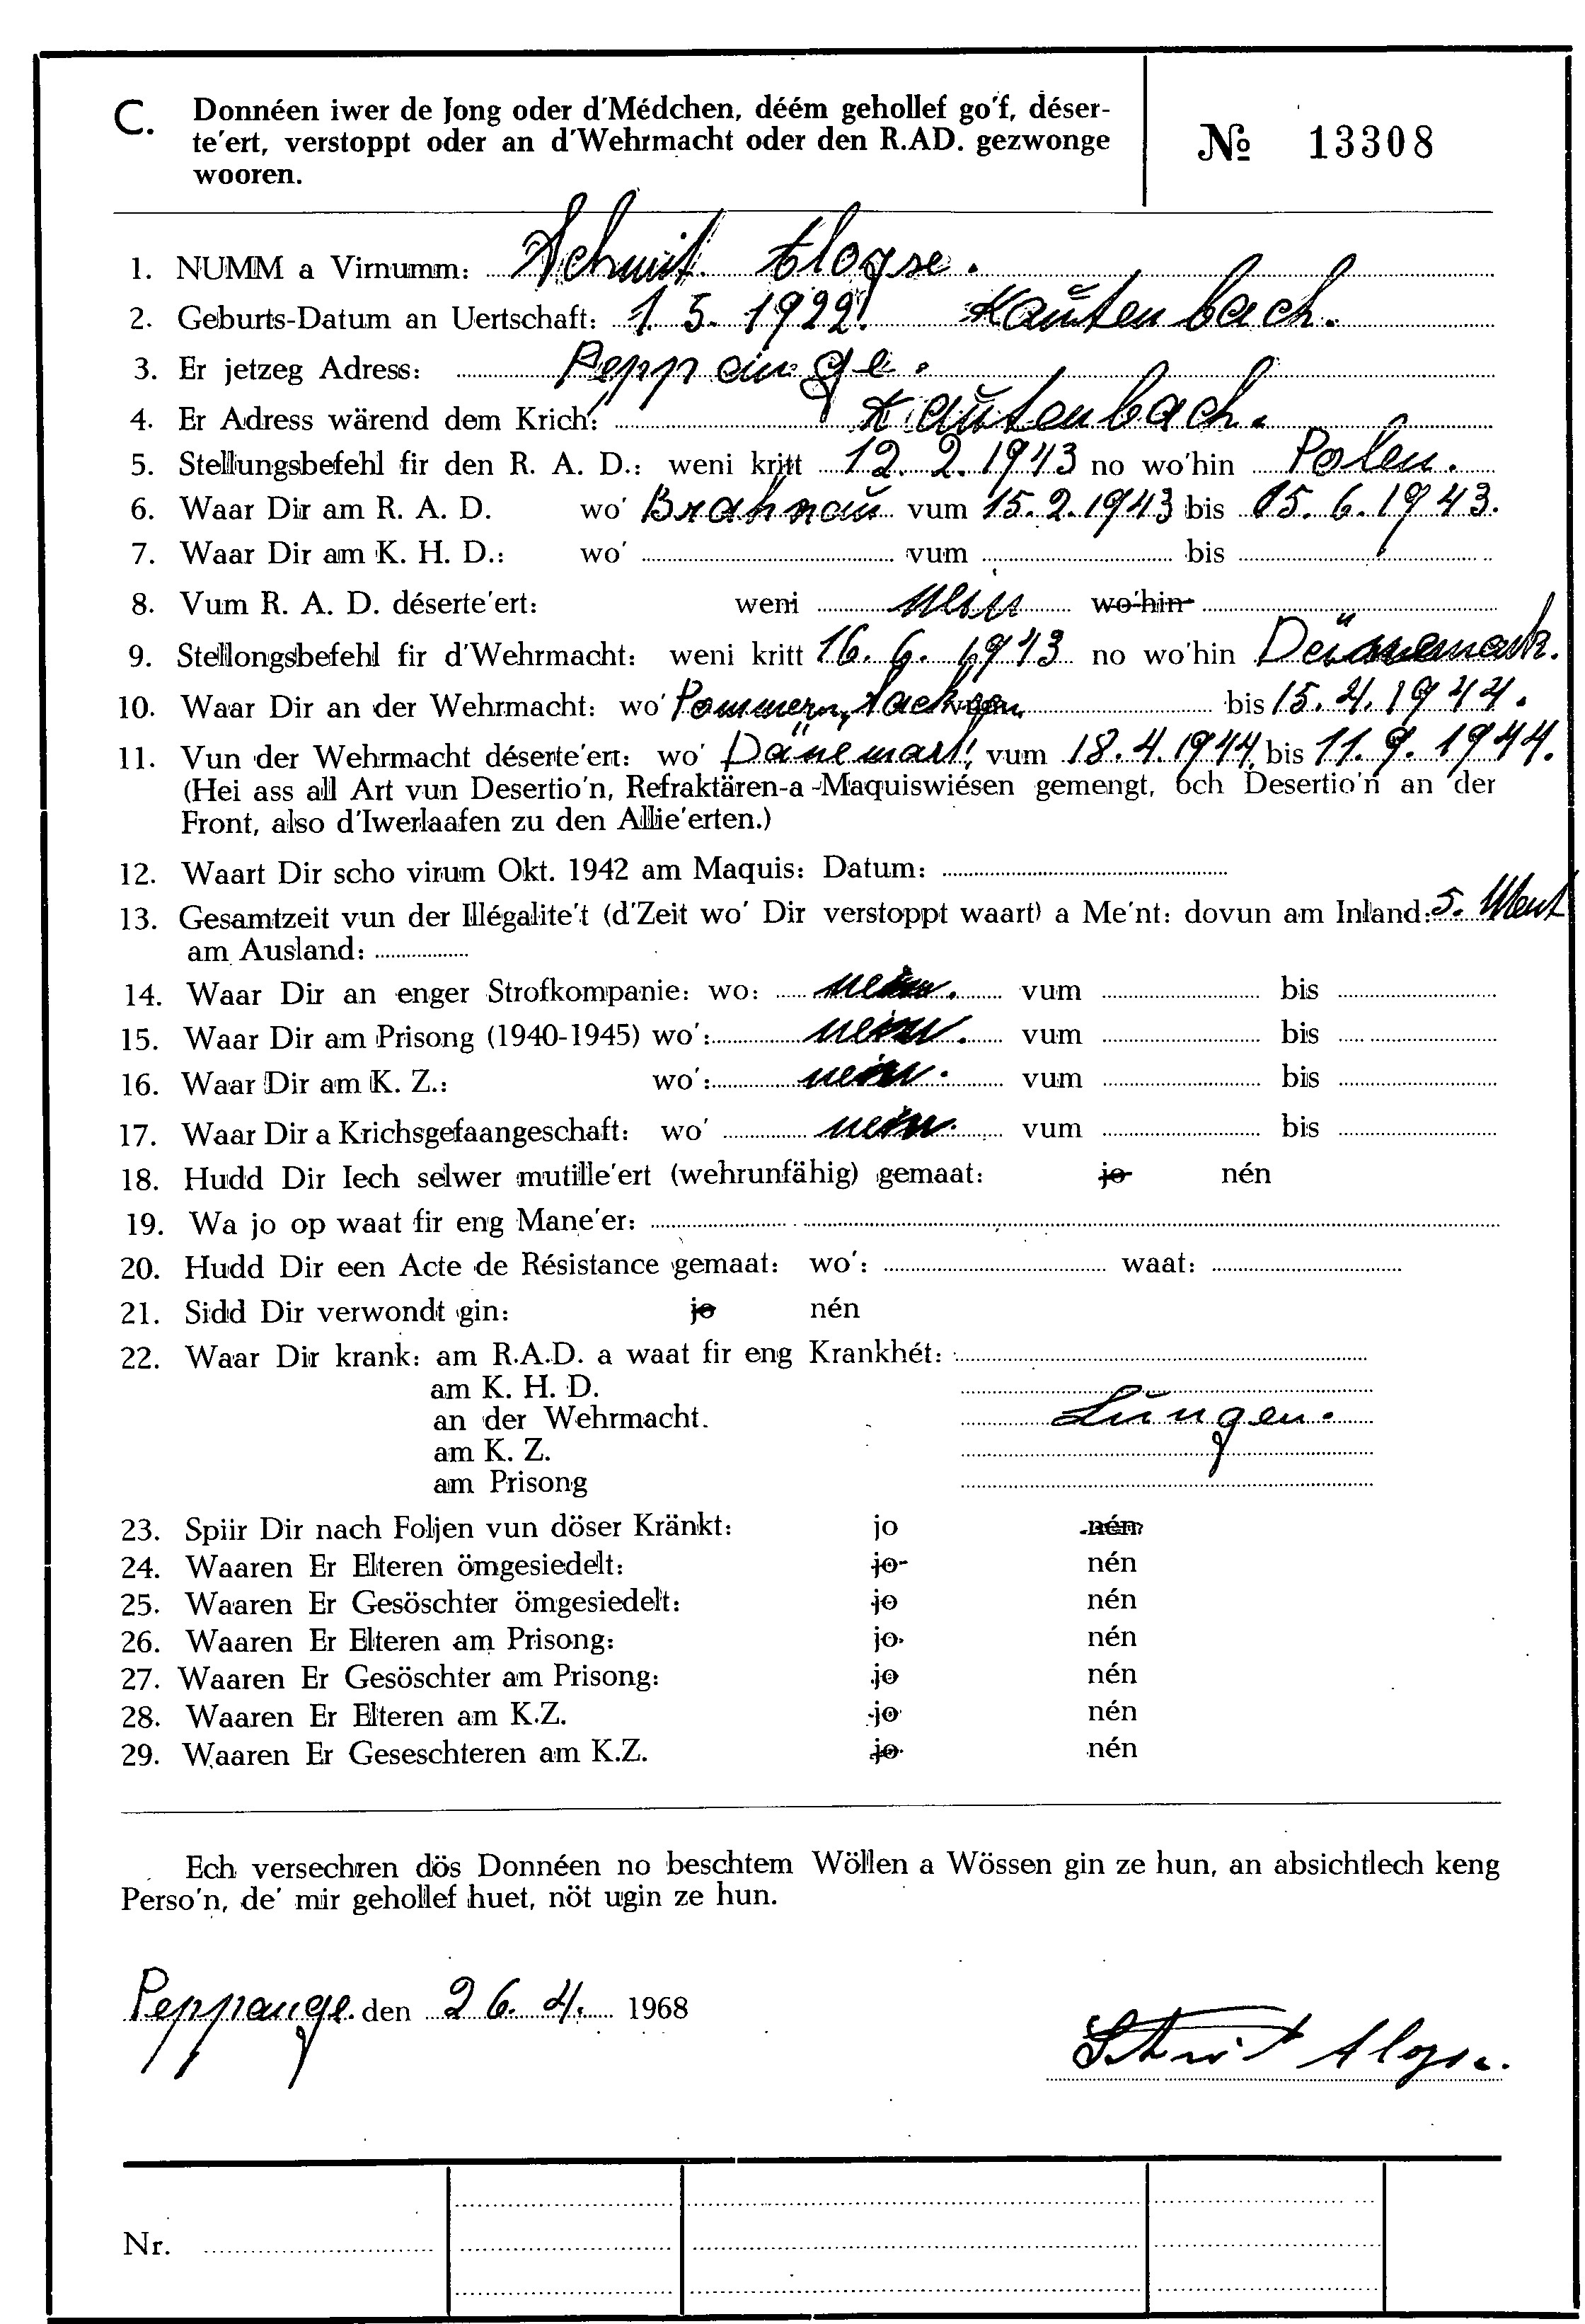 C. Donnéen iwer de Jong oder d'Médchen, déém gehollef go'f, déser-
te'ert, verstoppt oder an d'Wehrmacht oder den R.AD. gezwonge
wooren.
№ 13308
1. NUMM a Virnumm: Schmit Aloyse.
2. Geburts-Datum an Uertschaft: 1. 5. 1922. Kautenbach.
3. Er jetzeg Adress: Peppange.
4. Er Adress wärend dem Krich: Kautenbach.
5. Stellungsbefehl fir den R. A. D.: weni kritt 12. 2. 1943 no wo'hin Polen.
6. Waar Dir am R. A. D. wo' Brahnau vum 15. 2. 1943 bis 15. 6. 1943.
7. Waar Dir am K. H. D.: wo' vum bis
8. Vum R. A. D. déserte'ert: weni nein wo'hin
9. Stellongsbefehl fir d'Wehrmacht: weni kritt 16. 6. 1943 no wo'hin Dänemark.
10. Waar Dir an der Wehrmacht: wo' Pommern, Sachsen, vum bis 15. 4. 1944.
11. Vun der Wehrmacht déserte'ert: wo' Dänemark! vum 18. 4. 1944 bis 11. 9. 1944.
(Hei ass all Art vun Desertio'n, Refraktären-a -Maquiswiésen gemengt, och Desertio'n an der
Front, also d'Iwerlaafen zu den Allie'erten.)
12. Waart Dir scho virum Okt. 1942 am Maquis: Datum:
13. Gesamtzeit vun der Illégalite't (d'Zeit wo' Dir verstoppt waart) a Me'nt: dovun am Inland: 5. Ment
am Ausland:
14. Waar Dir an enger Strofkompanie: wo: nein. vum bis
15. Waar Dir am Prisong (1940-1945) wo': nein. vum bis
16. Waar Dir am K. Z.: wo': nein. vum bis
17. Waar Dir a Krichsgefaangeschaft: wo' nein. vum bis
18. Hudd Dir Iech selwer mutille'ert (wehrunfähig) gemaat: jo nén
19. Wa jo op waat fir eng Mane'er:
20. Hudd Dir een Acte de Résistance gemaat: wo': waat:
21. Sidd Dir verwondt gin: jo nén
22. Waar Dir krank: am R.A.D. a waat fir eng Krankhét:
am K. H. D.
an der Wehrmacht. Lungen.
am K. Z.
am Prisong
23. Spiir Dir nach Foljen vun döser Kränkt: jo nén
24. Waaren Er Elteren ömgesiedelt: jo nén
25. Waaren Er Gesöschter ömgesiedelt: jo nén
26. Waaren Er Elteren am Prisong: jo nén
27. Waaren Er Gesöschter am Prisong: jo nén
28. Waaren Er Elteren am K.Z. jo nén
29. Waaren Er Geseschteren am K.Z. jo nén
Ech versechren dös Donnéen no beschtem Wöllen a Wössen gin ze hun, an absichtlech keng
Perso'n, de' mir gehollef huet, nöt ugin ze hun.
Peppange. den 26. 4. 1968
Schmit Aloyse.
Nr.